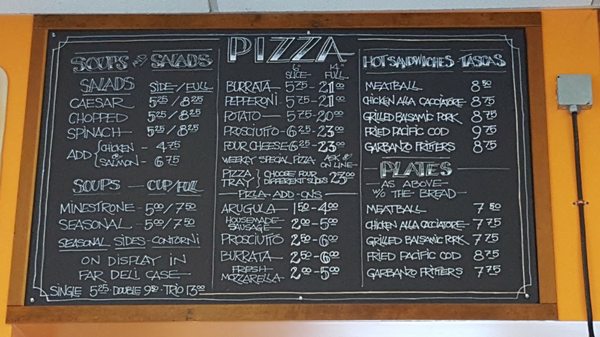 SOUPS AND SALADS
SALADS SIDE/FULL
CAESAR 5.25/8.25
CHOPPED 5.25/8.25
SPINACH 5.25/8.25
ADD CHICKEN - 4.75
OR SALMON - 6.75
SOUPS - CUP/FULL
MINESTRONE - 5.00/7.50
SEASONAL - 5.00/7.50
SEASONAL SIDES-CONTORNI
ON DISPLAY IN
FAR DELI CASE
SINGLE 5.25 · DOUBLE 9.50 · TRIO 13.00
PIZZA
SLICE - FULL
BURRATA 5.75 - 21.00
PEPPERONI 5.75 - 21.00
POTATO 5.75 - 20.00
PROSCIUTTO - 6.25 - 23.00
FOUR CHEESE - 6.25 - 23.00
WEEKLY SPECIAL PIZZA ASK OR ON LINE
PIZZA TRAY CHOOSE FOUR DIFFERENT SLICES 23.00
PIZZA ADD-ONS
ARUGULA 1.50 - 4.00
HOUSEMADE SAUSAGE 2.00 - 5.00
PROSCIUTTO 2.50 - 6.00
BURRATA 2.50 - 6.00
FRESH MOZZARELLA 2.00 - 5.00
HOT SANDWICHES TASCAS
MEATBALL 8.50
CHICKEN ALLA CACCIATORE 8.75
GRILLED BALSAMIC PORK 8.75
FRIED PACIFIC COD 9.75
GARBANZO FRITTERS 8.75
PLATES
AS ABOVE
W/O THE BREAD
MEATBALL 7.50
CHICKEN ALLA CACCIATORE 7.75
GRILLED BALSAMIC PORK 7.75
FRIED PACIFIC COD 8.75
GARBANZO FRITTERS 7.75